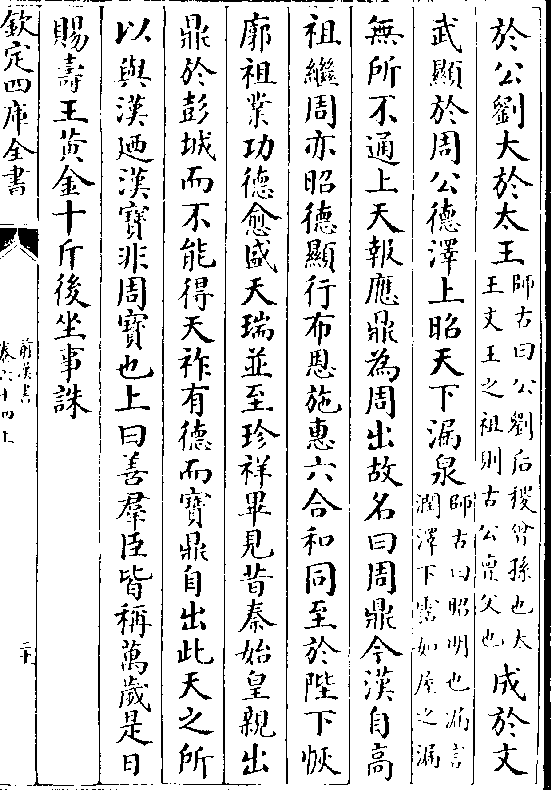 於公劉大於太王師古曰公劉后稷曾孫也大王文王之祖則古公亶父也成於文
武顯於周公德澤上昭天下漏泉師古曰昭明也漏言潤澤下霑如屋之漏
無所不通上天報應鼎為周出故名曰周鼎今漢自高
祖繼周亦昭德顯行布恩施惠六合和同至於陛下恢
廓祖業功德愈盛天瑞並至珍祥畢見昔秦始皇親出
鼎於彭城而不能得天祚有德而寶鼎自出此天之所
以與漢廼漢寶非周寶也上曰善羣臣皆稱萬歲是日
賜壽王黃金十斤後坐事誅
欽定四庫全書
前漢書
卷六十四上
二十